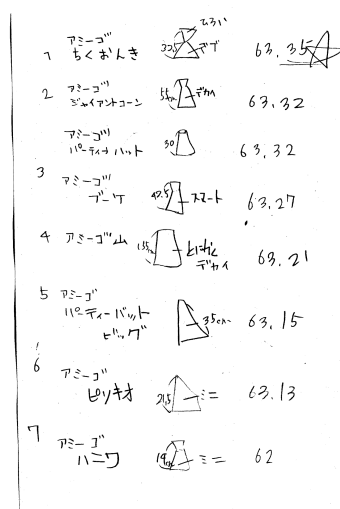 1 アミーゴ ちくおんき 32.5 ひろい デブ 63.35
2 アミーゴ ジャイアントコーン 55cm デカイ 63.32
アミーゴ パーティーハット 30 63.32
3 アミーゴ ブーケ 42.5 スマート 63.27
4 アミーゴ山 135cm とにかく デカイ 63.21
5 アミーゴ パーティーハット ビッグ 35cm 63.15
6 アミーゴ ピノキオ 21.5 ミニ 63.13
7 アミーゴ ハニワ 19cm ミニ 62